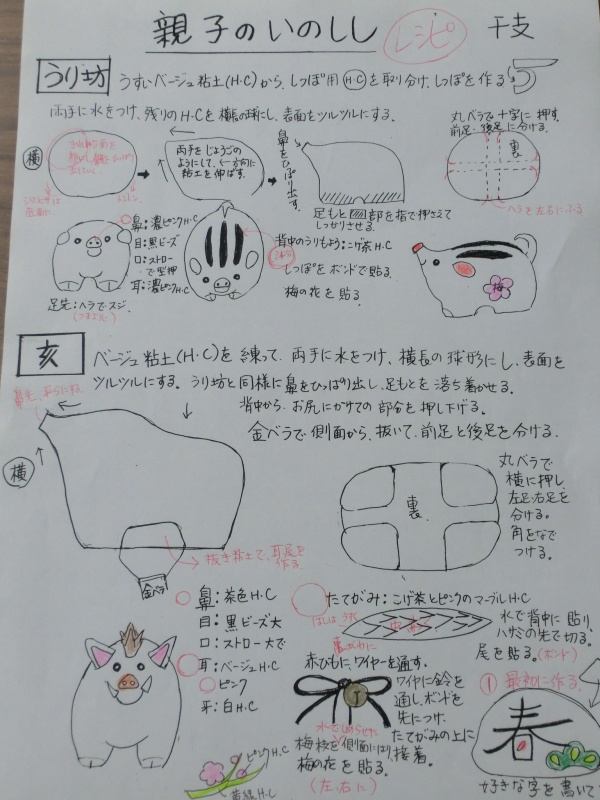 親子のいのしし レシピ 干支
うり坊 うすいベージュ粘土(H・C)から、しっぽ用(H・C)を取り分け、しっぽを作る
両手に水をつけ、残りのH・Cを横長の球にし、表面をツルツルにする。
丸ベラで十字に押す。
前足・後足に分ける。
横
両手をじょうごの
ようにして、←方向に
粘土を伸ばす。
鼻をひっぱり出す。
足もと 部を指で押さえて
しっかりさせる。
裏
ヘラを左右にふる
鼻:濃ピンクH・C
目:黒ビーズ
口:ストロー
で型押
耳:濃ピンクH・C
足先:ヘラでスジ
(つまようじ)
背中のうりもよう:こげ茶H・C
しっぽをボンドで貼る
梅の花を貼る
梅
亥 ベージュ粘土(H・C)を練って、両手に水をつけ、横長の球形にし、表面を
ツルツルにする。うり坊と同様に鼻をひっぱり出し、足もとを落ち着かせる。
背中からお尻にかけての部分を押し下げる。
金ベラで側面から、抜いて、前足と後足を分ける。
横
抜き粘土で、耳尾を
作る。
金ベラ
裏
丸ベラで
横に押し、
左足・右足を
分ける。
角をなで
つける。
鼻:茶色H・C
目:黒ビーズ大
口:ストロー大で
耳:ベージュH・C
ピンク
牙:白H・C
ピンクH・C
黄緑H・C
たてがみ:こげ茶とピンクのマーブルH・C
水で背中に貼り、
ハサミの先で切る。
尾を貼る。(ボンド)
赤ひもに、ワイヤーを通す。
ワイヤに鈴を
通し、ボンドを
先につけ、
たてがみの上に
接着。
水でしめらせた
梅枝を側面にはり、
梅の花を貼る。
(左、右に)
① 最初に作る。
春
好きな字を書いて